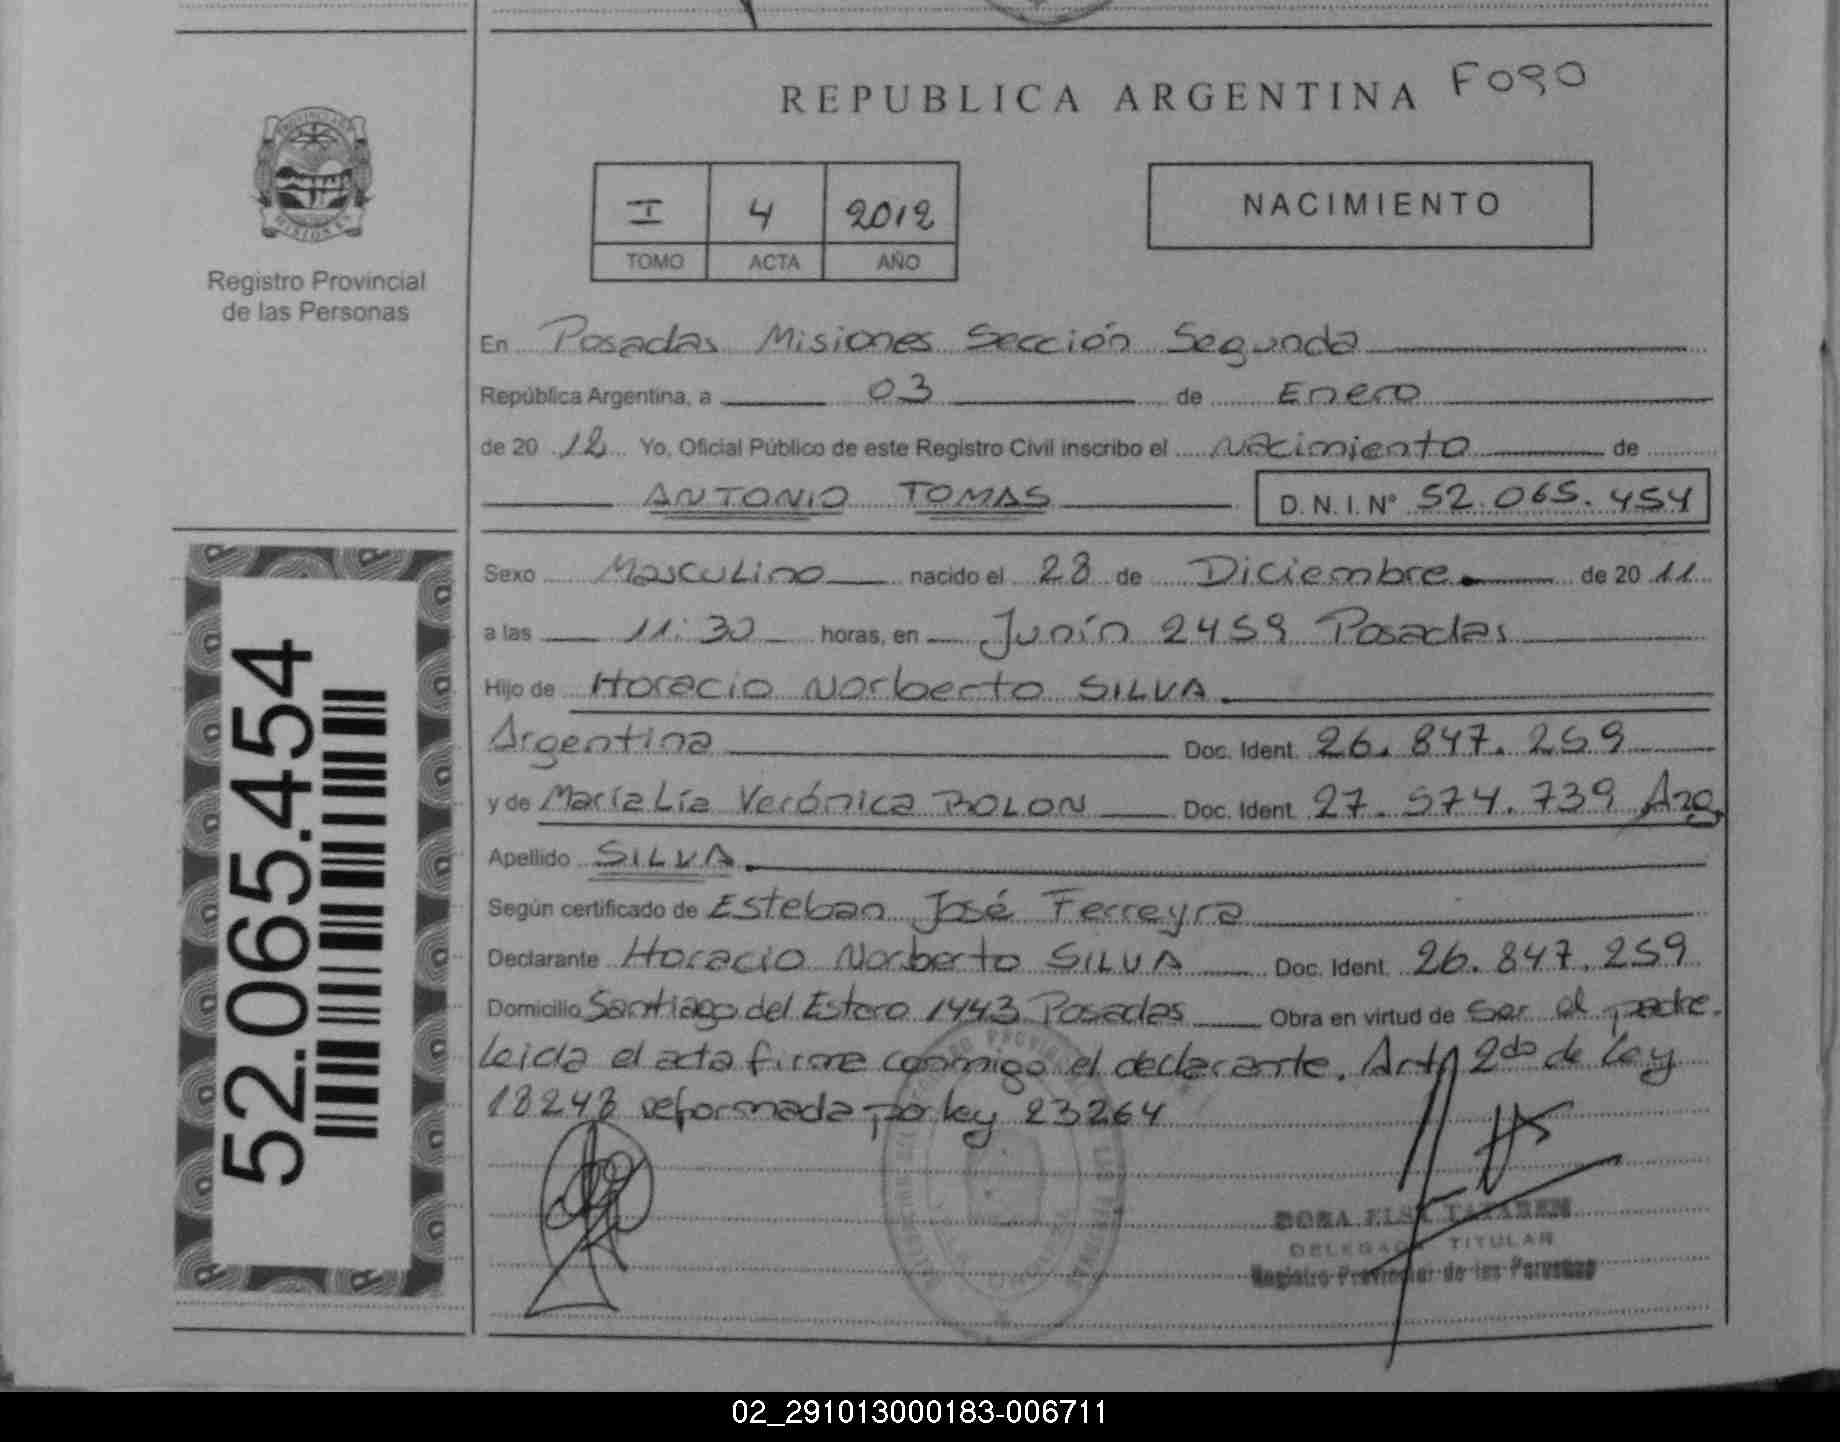 REPUBLICA ARGENTINA F090
I 4 2012
TOMO ACTA AÑO
NACIMIENTO
Registro Provincial
de las Personas
En Posadas Misiones Sección Segunda
República Argentina, a 03 de Enero
de 20 12 Yo, Oficial Público de este Registro Civil inscribo el nacimiento de
ANTONIO TOMAS D. N. I. Nº 52.065.454
Sexo Masculino nacido el 28 de Diciembre de 20 11
a las 11:30 horas, en Junín 2459 Posadas
Hijo de Horacio Norberto SILVA
Argentina Doc. Ident. 26.847.259
y de María Lía Verónica BOLON Doc. Ident. 27.574.739 Arg
Apellido SILVA
Según certificado de Esteban José Ferreyra
Declarante Horacio Norberto SILVA Doc. Ident. 26.847.259
Domicilio Santiago del Estero 1443 Posadas Obra en virtud de ser el padre.
Leida el acta firme conmigo el declarante. Art 2do de Ley
18248 reformada por ley 23264
52.065.454
DELEGADA TITULAR
Registro Provincial de las Personas
02_291013000183-006711